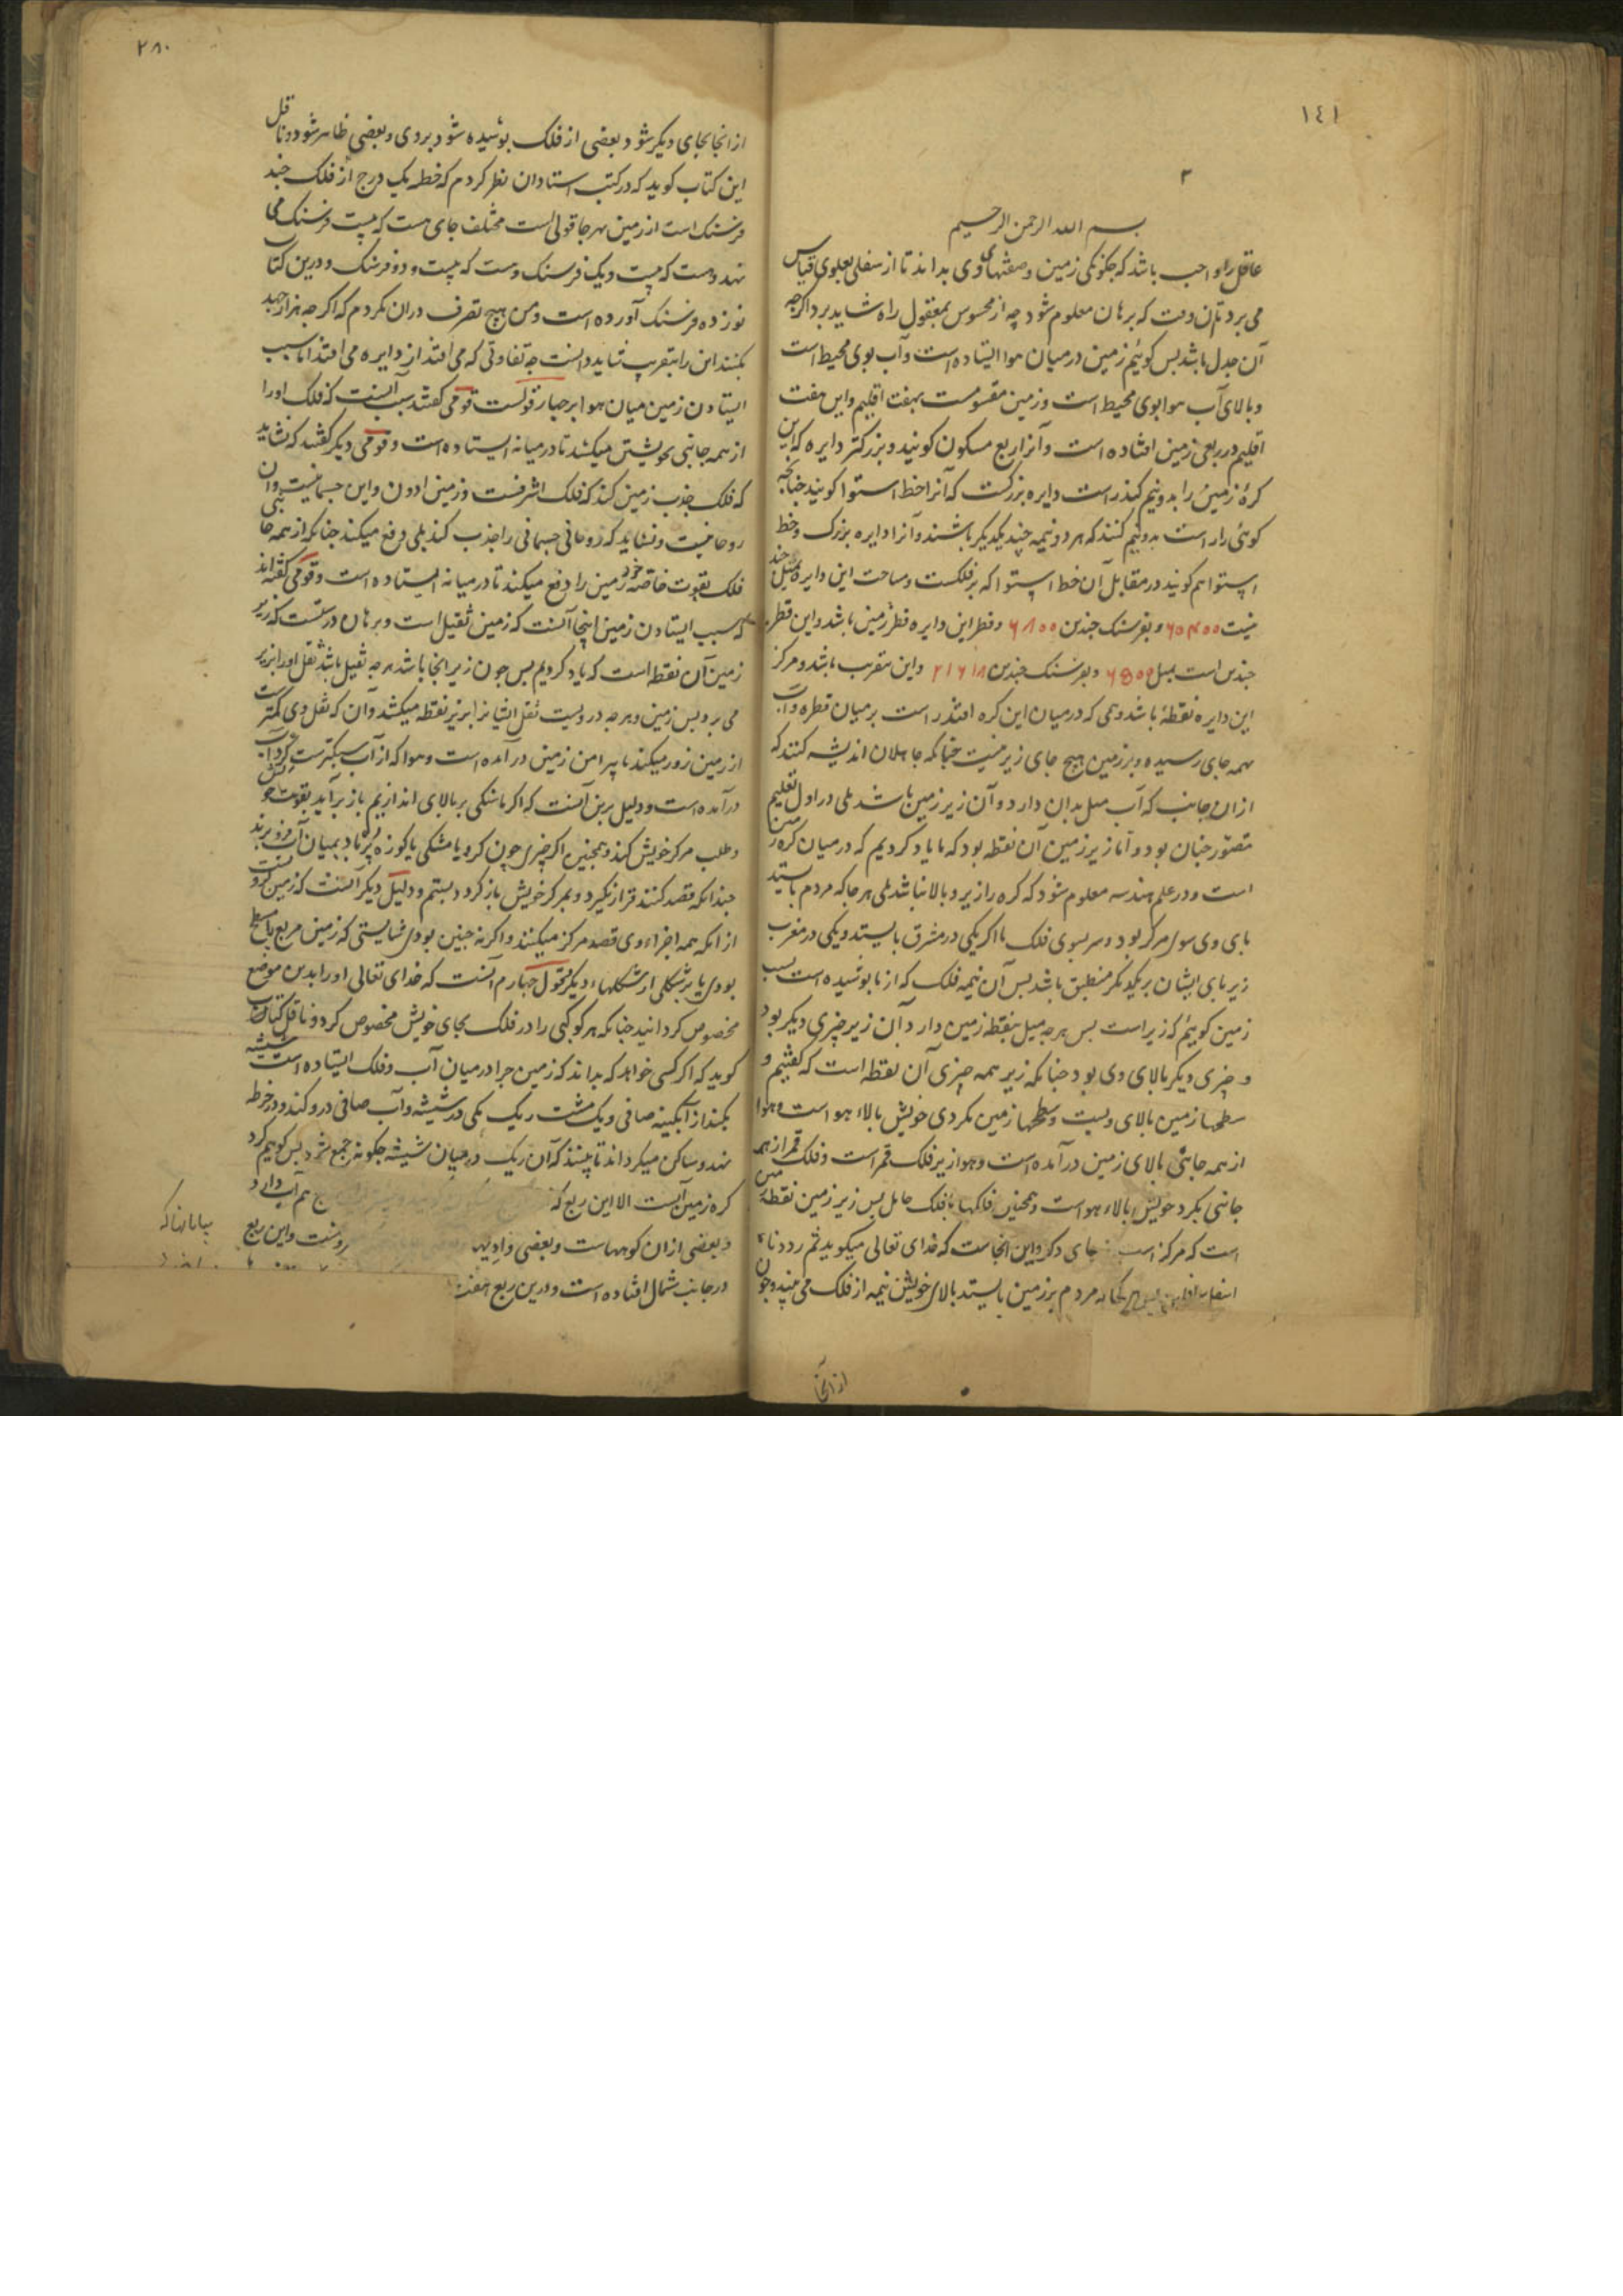 ۱٤۱
۳
بسم الله الرحمن الرحیم
عاقل را واجب باشد که چکونکی زمین و صفتهای وی بداند تا از سفلی بعلوی قیاس
می برد تا آن وقت که برهان معلوم شود چه از محسوس بمعقول راه شاید برد اکرچه
آن جدل باشد بس کوئیم زمین در میان هوا ایستاده است و آب بوی محیط است
و بالای آب هوا بوی محیط است و زمین مقسومست بهفت اقلیم و این هفت
اقلیم در ربعی زمین افتاده است و آنرا ربع مسکون کویند و بزرکتر دایره که این
کرۀ زمین را بدو نیم کند راست دایره بزرکست که آنرا خط استوا کویند چنانچه
کوئی را راست بدو نیم کنند که هر دو نیمه چند یکدیکر باشند و آنرا دایره بزرک و خط
استوا هم کویند در مقابل آن خط استوا که بر فلکست و مساحت این دایره بمیل چند
و بفرسنک چندین ۶۸۰۰ و قطر این دایره قطر زمین باشد و این قطر
چندین است بمیل و بفرسنک چندین واین بتقریب باشد و مرکز
این دایره نقطۀ باشد وهمی که در میان این کره افتد راست بر میان قطر و آب
بهمه جای رسیده و بر زمین هیچ جای زیر نیست چنانکه جاهلان اندیشه کنند که
از آن جانب که آب میل بدان دارد و آن زیر زمین باشد بلی در اول تعلیم
متصور چنان بود و اما زیر زمین آن نقطه بود که ما یاد کردیم که در میان کره زمین
است و در علم هندسه معلوم شود که کره را زیر و بالا نباشد بلی هر جا که مردم بایستد
بای وی سوی مرکز بود و سر بسوی فلک تا اکر یکی در مشرق بایستد و یکی در مغرب
زیر بای ایشان بر یکدیکر منطبق باشد بس آن نیمه فلک که از ما بوشیده است بسبب
زمین کوییم که زیر است بس هرچه میل بنقطه زمین دارد آن زیر چیزی دیکر بود
و چیزی دیکر بالای وی بود چنانکه زیر همه چیزی آن نقطه است که کفتیم و
سطحهاء زمین بالای ویست و سطحها زمین بکردی خویش بالاء هواست و هوا
از همه جانبی بالای زمین در آمده است و هوا زیر فلک قمر است و فلک قمر از همه
جانبی بکرد خویش بالاء هواست و همچنین فلکها بفلک حامل بس زیر زمین نقطه
است که مرکز است جای دکر و این آنجاست که خدای تعالی میکوید ثم رددناه
اسفل سافلین مردم بر زمین بایستد بالای خویش نیمه از فلک می بیند و چون
از آنجا
۲۸۰
از آنجا بجای دیکر شود بعضی از فلک بوشیده شود بروی و بعضی ظاهر شود و ناقل
این کتاب کوید که در کتب استادان نظر کردم که خطه یک درج از فلک چند
فرسنک است از زمین هر جا قولی است مختلف جای هست که بیست فرسنک می
نهد و هست که بیست و یک فرسنک و هست که بیست و دو فرسنک و درین کتاب
نوزده فرسنک آورده است و من هیچ تصرف در آن نکردم که اکرچه هزار جهد
بکنند این را بتقریب شاید دانست چه تفاوتی که می افتد از دایره می افتد اما سبب
ایستادن زمین میان هوا بر چهار قولست قومی کفتند سبب آنست که فلک او را
از همه جانبی بخویشتن میکشد تا در میانه ایستاده است و قومی دیکر کفتند که نشاید
که فلک جذب زمین کند که فلک اشرفست و زمین ادون و این جسمانیست و آن
روحانیست و نشاید که روحانی جسمانی را جذب کند بلی دفع میکند چنانکه از همه جانبی
فلک بقوت خاصۀ خود زمین را دفع میکند تا در میانه ایستاده است و قومی کفته اند
که سبب ایستادن زمین اینجا آنست که زمین ثقیل است و برهان درستست که زیر
زمین آن نقطه است که یاد کردیم بس چون زیر آنجا باشد هرچه ثقیل باشد ثقل او را بزیر
می برد بس زمین و هرچه درویست ثقل ایشانرا بزیر نقطه میکشد و آن که ثقل وی کمترست
از زمین زور میکند تا پیرامن زمین در آمده است و هوا که از آب سبکترست کرد آب
در آمده است و دلیل برین آنست که اکر ما سنکی بر بالای اندازیم باز بر آید بقوت خویش
و طلب مرکز خویش کند و همچنین اکر چیزی چون کرو یا مشکی یا کوزه پر باد بمیان آب فرو برند
چندانکه قصد کنند قرار نکیرد و بمرکز خویش باز کردد و بستم و دلیل دیکر آنست که زمین کرویست
از انکه همه اجزاء وی قصد مرکز میکنند و اکر نه چنین بودی شایستی که زمین مربع یا مسطح
بودی یا بر شکلی از شکلهاء دیکر و قول چهارم آنست که خدای تعالی او را بدین موضع
مخصوص کردانید چنانکه هر کوکبی را در فلک بجای خویش مخصوص کرد و ناقل کتاب
کوید که اکر کسی خواهد که بداند که زمین چرا در میان آب و فلک ایستاده است شیشه
بکند از آبکینه صافی و یک مشت ریک بکی در شیشه و آب صافی درو کند و در خرطه
نهد و ساکن میکرداند تا ببیند که آن ریک در میان شیشه چکونه جمع شود بس کوییم کرد
کره زمین آبست الا این ربع که هم آب دارد
و بعضی از آن کوههاست و بعضی وادیها روست و این ربع
در جانب شمال افتاده است و درین ربع هفت
بیابانهاکه